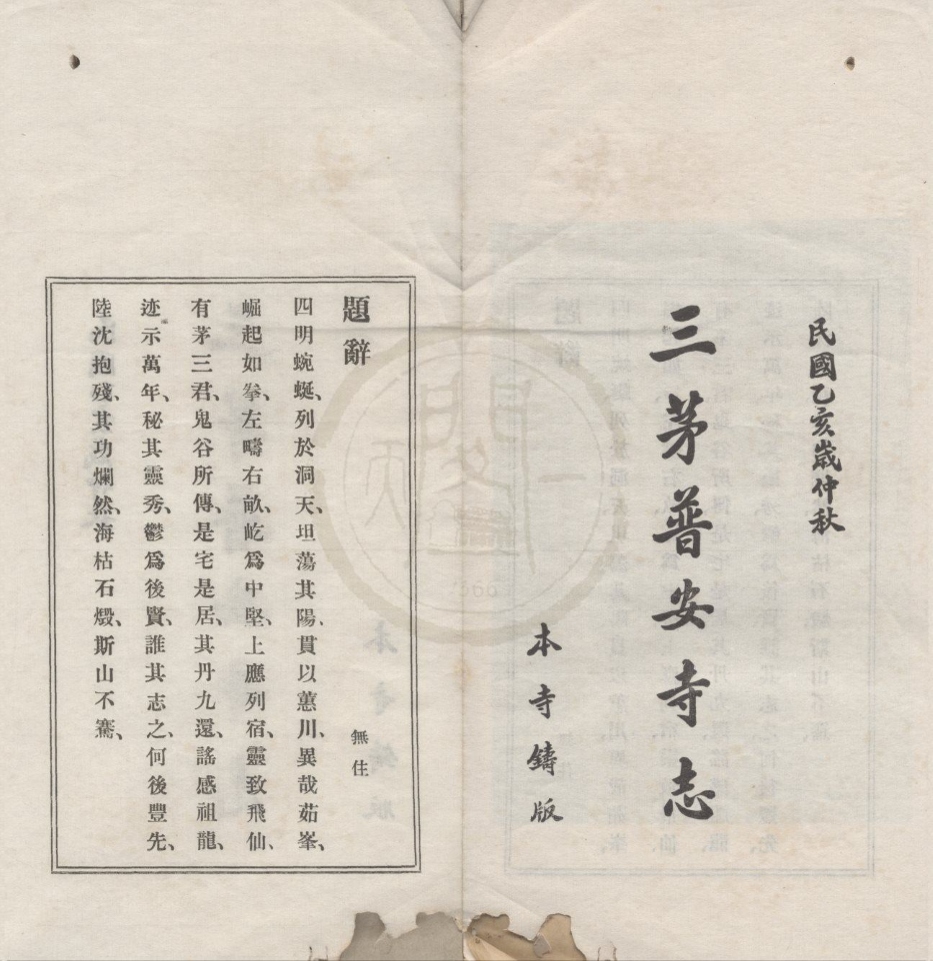 民國乙亥歲仲秋
三茅普安寺志
本寺鑄版
題辭
無住
四明蜿蜒、列於洞天、坦蕩其陽、貫以蕙川、異哉茹峯、
崛起如拳、左疇右畝、屹爲中堅、上應列宿、靈致飛仙、
有茅三君、鬼谷所傳、是宅是居、其丹九還、謠感祖龍、
迹示萬年、秘其靈秀、鬱爲後賢、誰其志之、何後豐先、
陸沈抱殘、其功爛然、海枯石燬、斯山不騫、